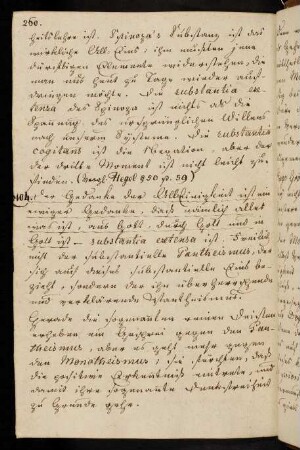 260.
heitslehre ist. Spinoza's Substanz ist das
wirkliche All Eins; ihm mußten jene
dürftigen Elemente widerstehen, die
man uns heut zu Tage wieder auf-
dringen möchte. Die substantia ex-
tensa des Spinoza ist nichts als die
Spannung des ursprünglichen Willens
nach unserm Systeme. Die substantia
cogitans ist die Negation aber der
der dritte Moment ist nicht leicht zu
finden. (Vergl. Hegel §50 p. 59)
104. Der Gedanke der Alleinigkeit ist ein
einziger Gedanke, daß nämlich alles
was ist, aus Gott, durch Gott und in
Gott ist – substantia extensa ist. Freilich
nicht der substantielle Pantheismus, der
sich auf dieses substantielle Eins be-
zieht, sondern der ihn überherrschende
und verklärende
Gerade die sogenannten reinen Deisten
erheben ein Geschrei gegen den Pan-
theismus, aber es geht mehr gegen
den Monotheismus; sie fürchten, daß
die positive Erkentniß eintrete, und
damit ihre sogenante Denkfreiheit
zu Grunde gehe.